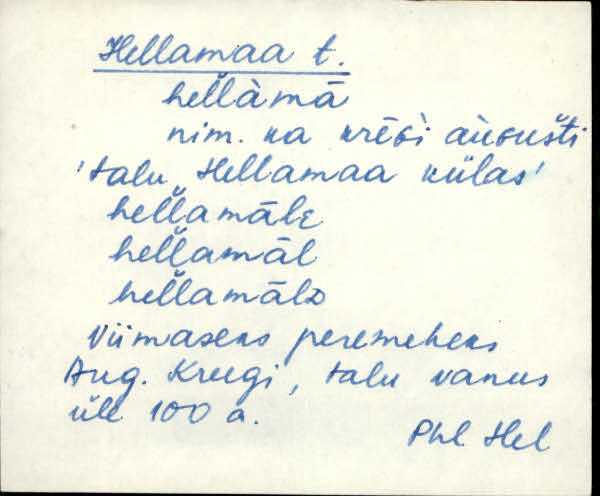 Hellamaa t.
hell̆àmā
nim. ka krēɢì àùɢušti
'talu Hellamaa külas'
hell̆amāle
hell̆amāl
hell̆amālᴅ
Viimaseks peremeheks
Aug. Kreegi, talu vanus
üle 100 a.
Phl Hel